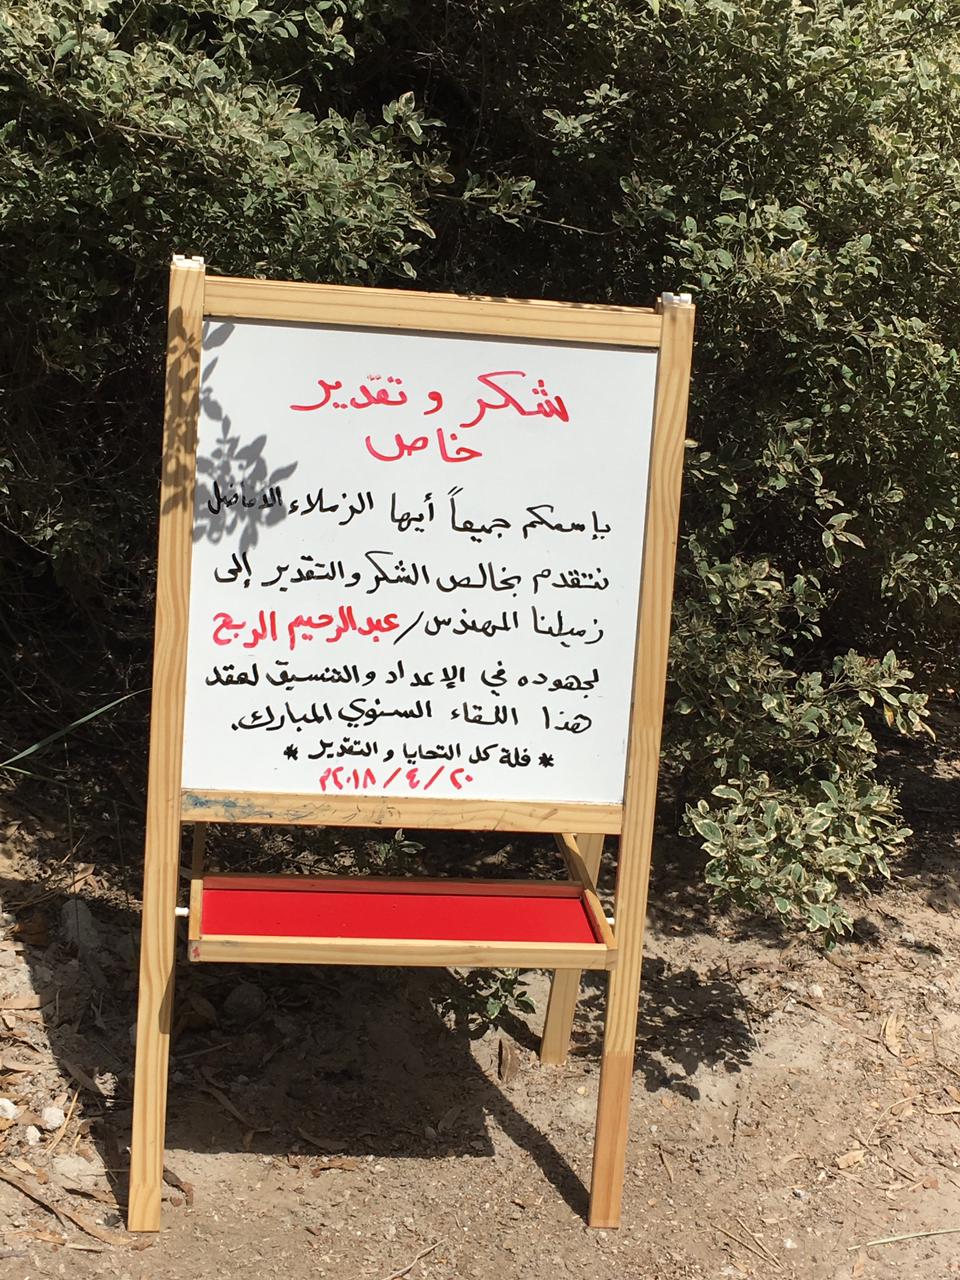 شكر و تقدير
خاص
بإسمكم جميعاً أيها الزملاء الأفاضل
نتقدم بخالص الشكر والتقدير إلى
زميلنا المهندس/عبدالرحيم الربيع
لجهوده في الإعداد والتنسيق لعقد
هذا اللقاء السنوي المبارك.
* فلة كل التحايا و التقدير *
٢٠/٤/٢٠١٨م